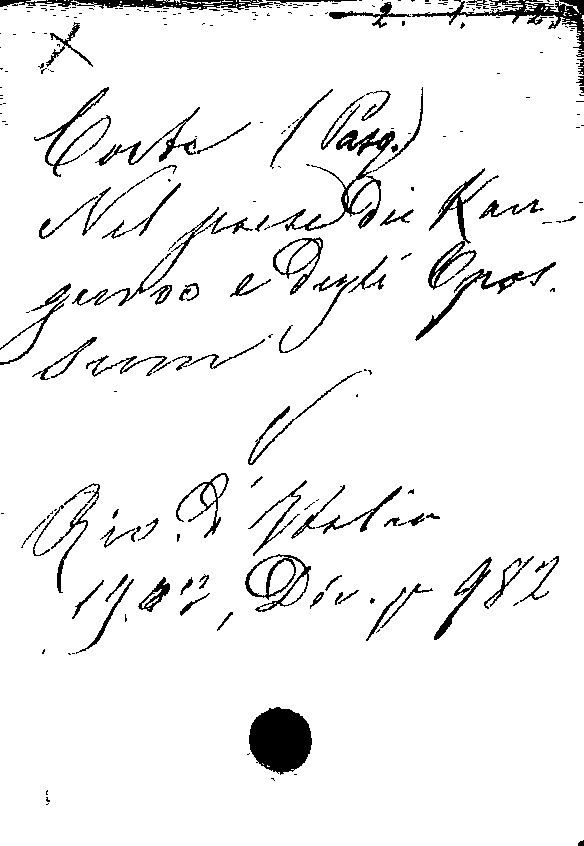 2. 1. 12
Corte (Pasq.)
Nel paese dei Kan-
guroo e degli Opos.
sum
V
Riv. d'Italia
Div. p 982